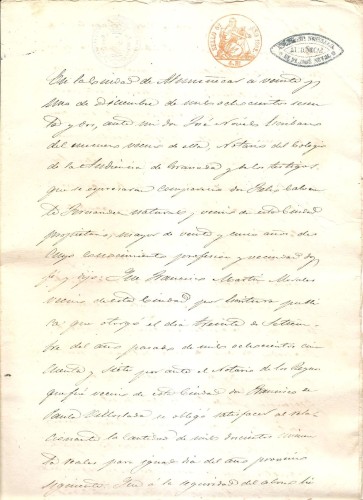 En la Ciudad de Almuñecar a veinte y
uno de diciembre de mil ochocientos
ta y dos, ante mi don José
del vecino de ella, Notario del Colegio
de la Audiencia de Granada y de los testigos
que se espresaran comparecio don Felix
Fernandez natural y vecino de esta Ciudad
propietario, mayor de veinte y cinco años de
cuyo conocimiento profesion y vecindad doy
fe y dijo: Que Francisco Martin Morales
vecino de esta Ciudad por escritura publi
ca, que otorgó el dia treinta de Setiem
bre del año pasado de mil ochocientos cin
cuenta y siete por ante el Notario de los Reynos
que fué vecino de esta Ciudad don Francisco de
Paula se obligó satisfacer al rela
cionante la cantidad de mil doscientos
ta reales para igual dia del año procsimo
siguiente. Que á la seguridad del abono hi